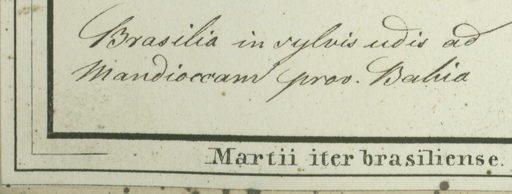 Brasilia in sylvis udis ad
Mandioccam prov. Bahia
Martii iter brasiliense.